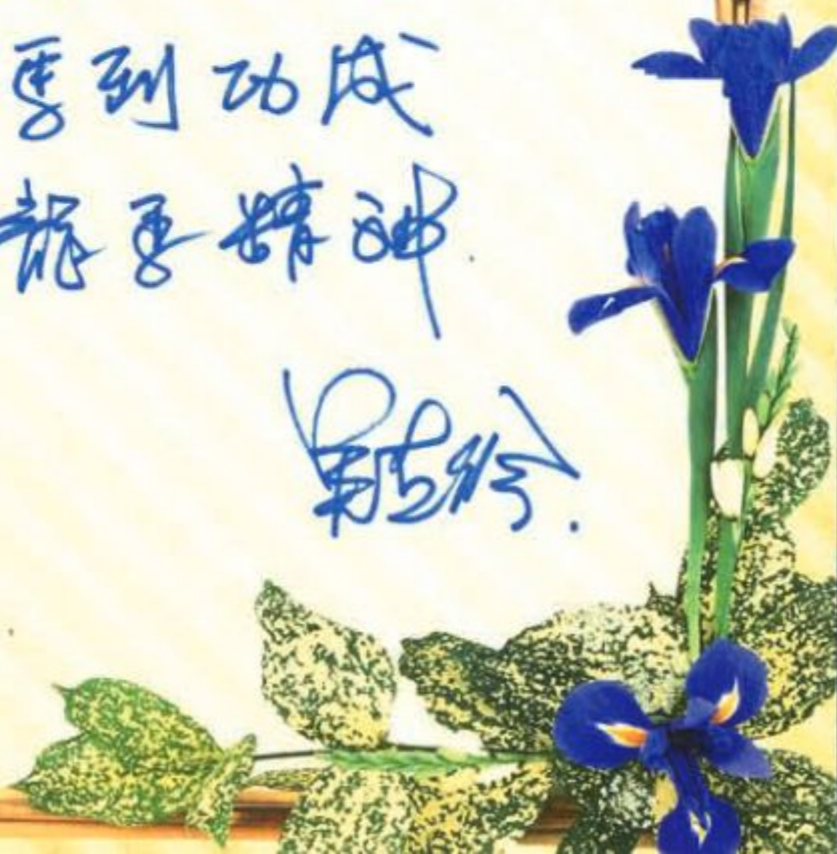 馬到功成
龍馬精神